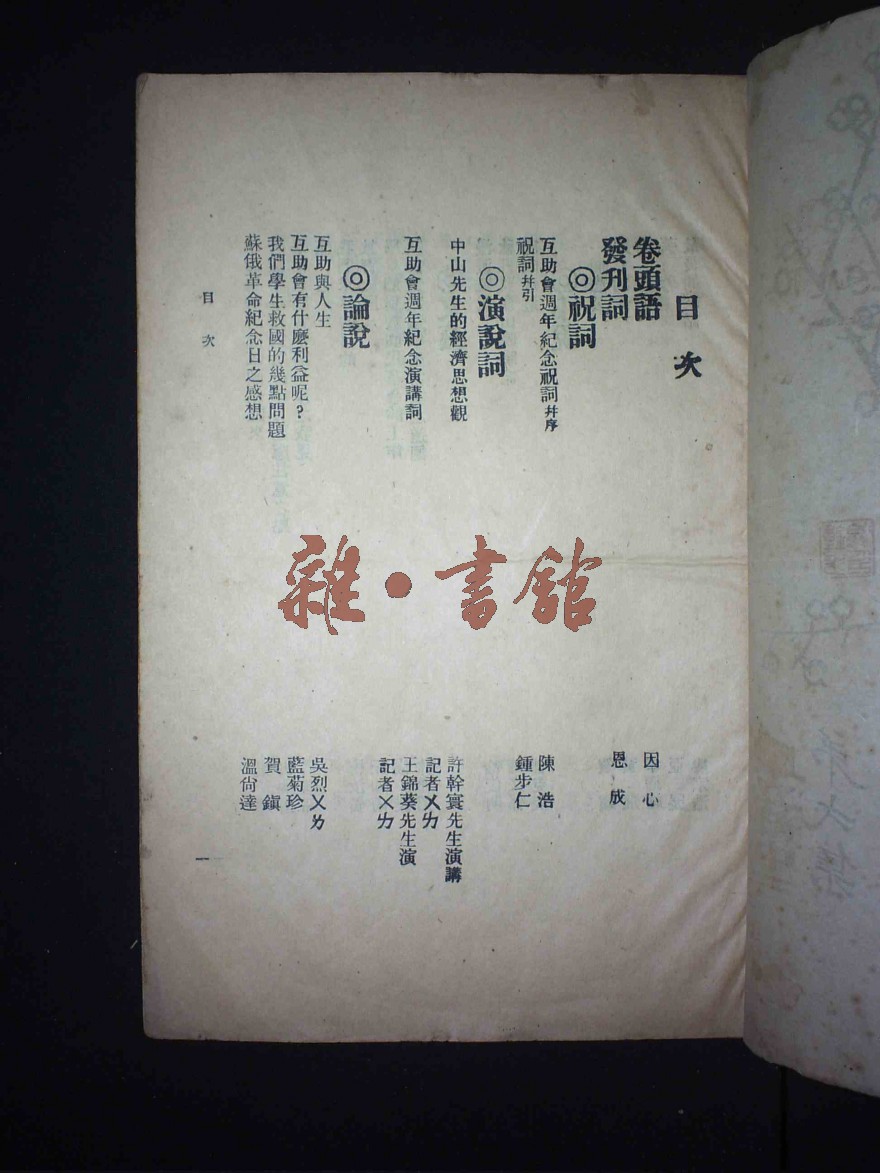 目次
卷頭語 因心
發刊詞 恩成
◎祝詞
互助會週年紀念祝詞并序 陳浩
祝詞并引 鍾步仁
◎演說詞
中山先生的經濟思想觀 許幹寰先生演講
記者ㄨㄌ
互助會週年紀念演講詞 王錦葵先生演
記者ㄨㄌ
◎論說
互助與人生 吳烈ㄨㄌ
互助會有什麽利益呢？ 藍菊珍
我們學生救國的幾點問題 賀鎭
蘇俄革命紀念日之感想 溫尙達
目次
一
雜·書館